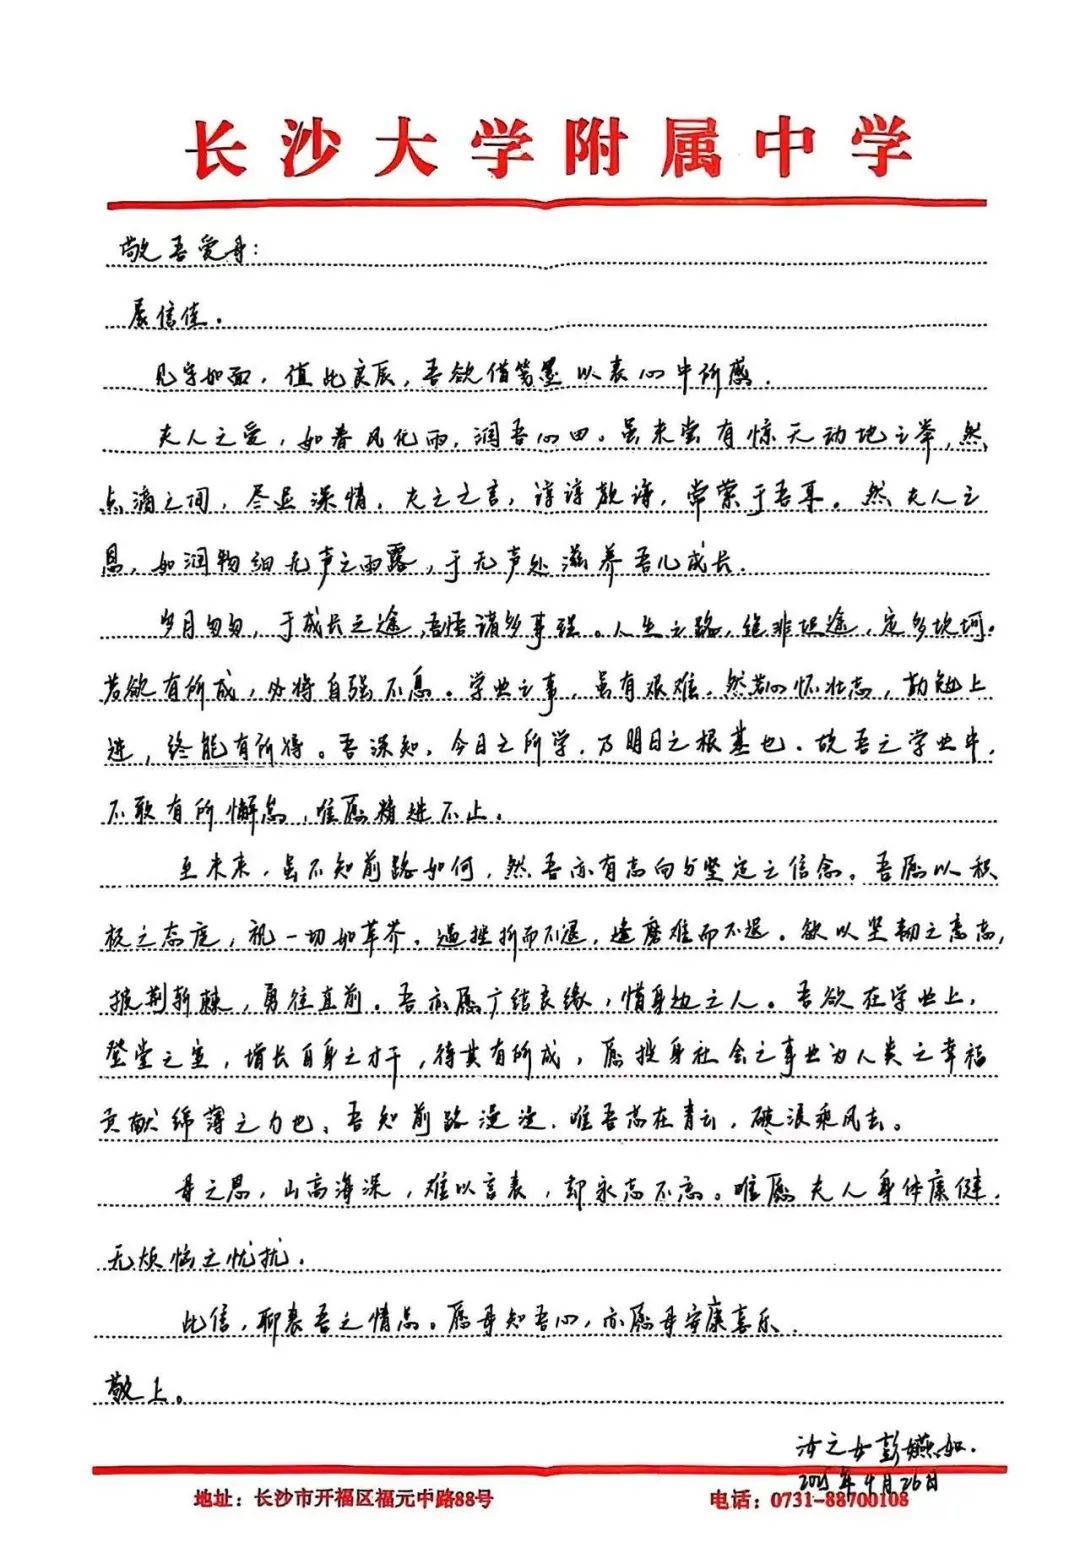 长沙大学附属中学
敬吾爱母：
展信佳.
见字如面，值此良辰，吾欲借笔墨以表心中所感.
夫人之爱，如春风化雨，润吾心田。虽未尝有惊天动地之举，然
点滴之间，尽是深情，夫之之言，谆谆教诲，常萦于吾耳。然夫人之
恩，如润物细无声之雨露，于无声处滋养吾儿成长.
岁月匆匆，于成长之途，吾悟诸多事理。人生之路，绝非坦途，定多坎坷。
若欲有所成，必将自强不息。学业之事，虽有艰难，然若心怀壮志，勤勉上
进，终能有所得。吾深知，今日之所学，乃明日之根基也，故吾之学业中，
不敢有所懈怠，唯愿精进不止。
至未来，虽不知前路如何，然吾亦有志向与坚定之信念。吾愿以积
极之态度，视一切如草芥，遇挫折而不退，逢磨难而不退。欲以坚韧之意志，
披荆斩棘，勇往直前。吾亦愿广结良缘，惜身边之人。吾欲在学业上，
登堂之室，增长自身之才干，待其有所成，愿投身社会之事业为人类之幸福
贡献绵薄之力也、吾知前路漫漫，唯吾志在青云，破浪乘风去。
母之恩，山高海深，难以言表，却永志不忘。唯愿夫人身体康健，
无烦恼之忧扰.
此信，聊表吾之情思。愿母知吾心，亦愿母安康喜乐.
敬上。
汝之女彭嬿如.
2025年9月26日
地址：长沙市开福区福元中路88号 电话：0731-88700108